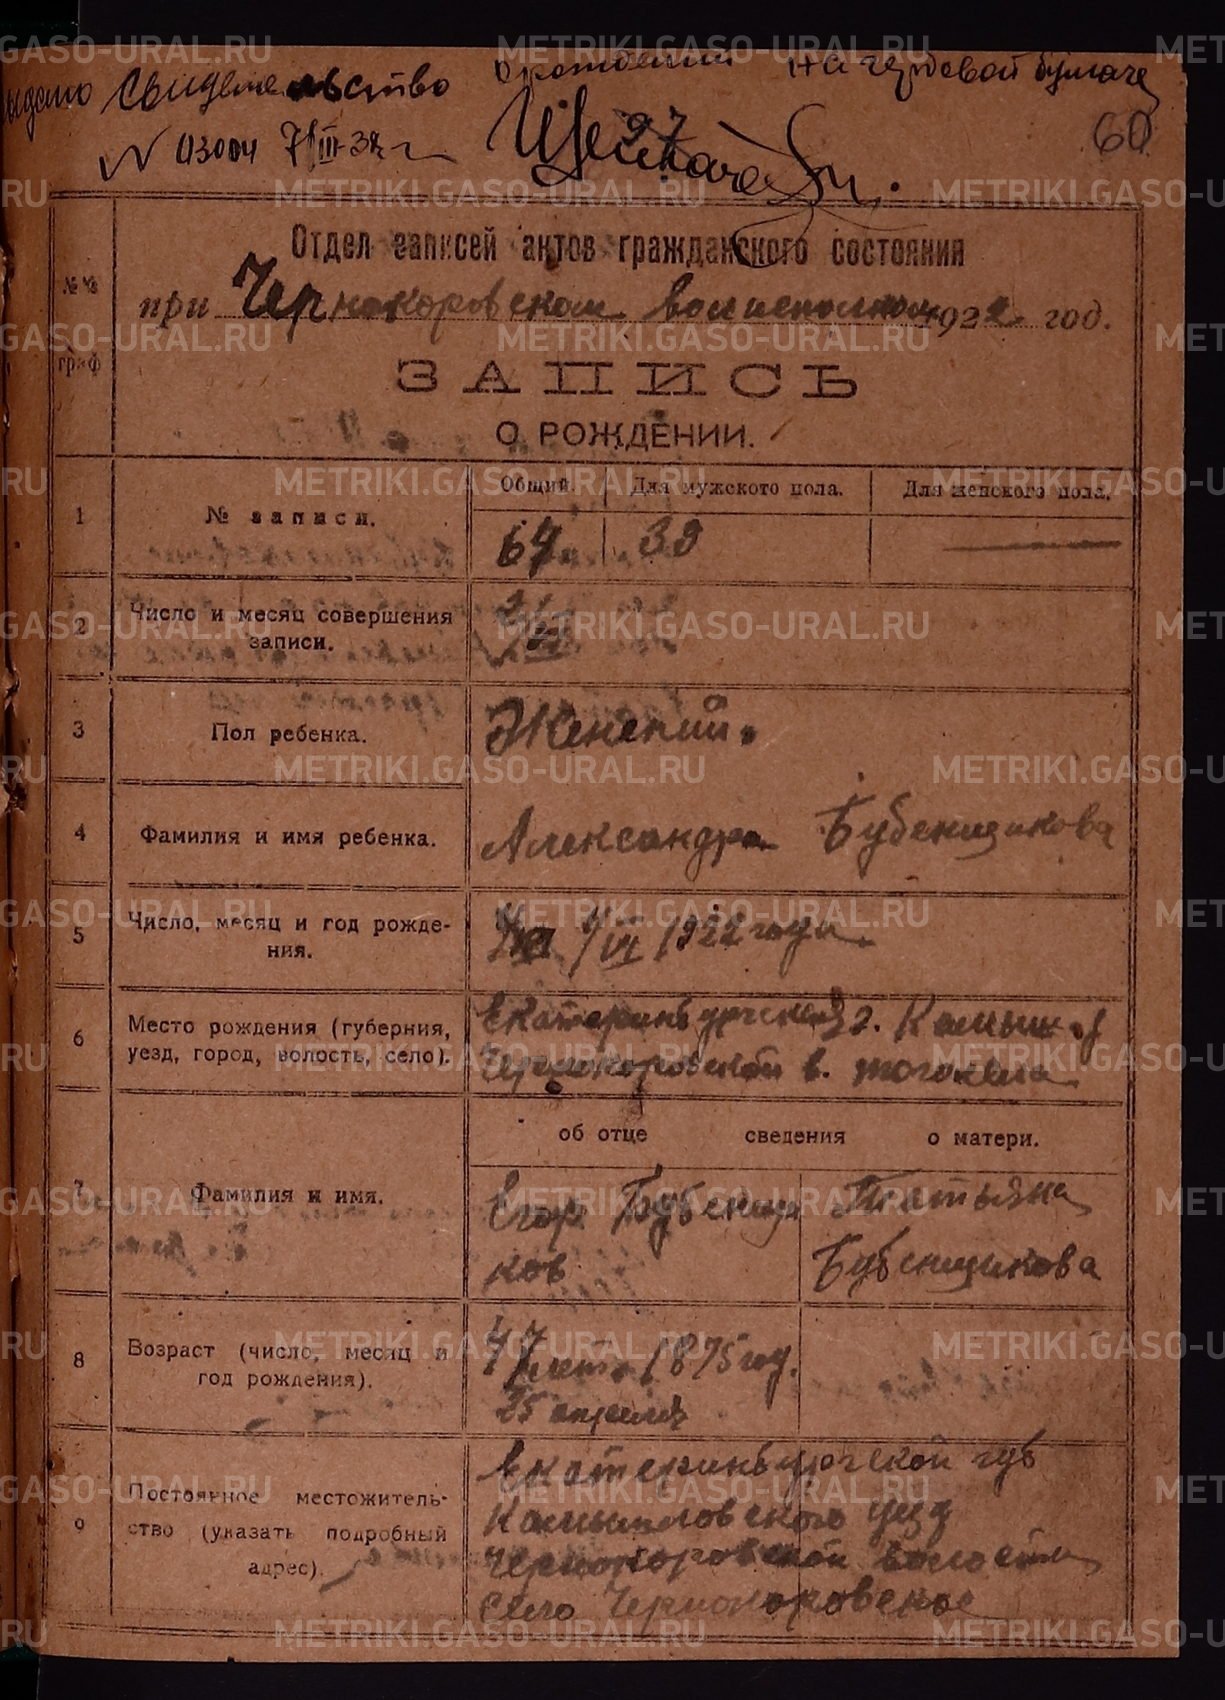 Свидетельство о рождении на гербовой бумаге
N 03004 7/III-32 г
60
Отдел записей актов гражданского состояния
№№ граф
при Чернокоровском волисполком 1922 год.
ЗАПИСЬ
О РОЖДЕНИИ.
Общий. Для мужского пола. Для женского пола.
1 № записи. 67 39 —
2 Число и месяц совершения
записи.
3 Пол ребенка. Женский.
4 Фамилия и имя ребенка. Александра Бубенщикова
5 Число, месяц и год рожде-
ния. 4/VI 1922 года.
6 Место рождения (губерния, Екатеринбургской г. Камышл. у
уезд, город, волость, село). Чернокоровской в. того села
об отце сведения о матери.
7 Фамилия и имя. Егор Бубенщи Татьяна
ков Бубенщикова
8 Возраст (число, месяц и 47 лет. 1875 год.
год рождения). 25 апреля
Екатеринбургской губ
9 Постоянное местожитель- Камышловского уезд
ство (указать подробный Чернокоровской волости
адрес). село Чернокоровское
METRIKI.GASO-URAL.RU